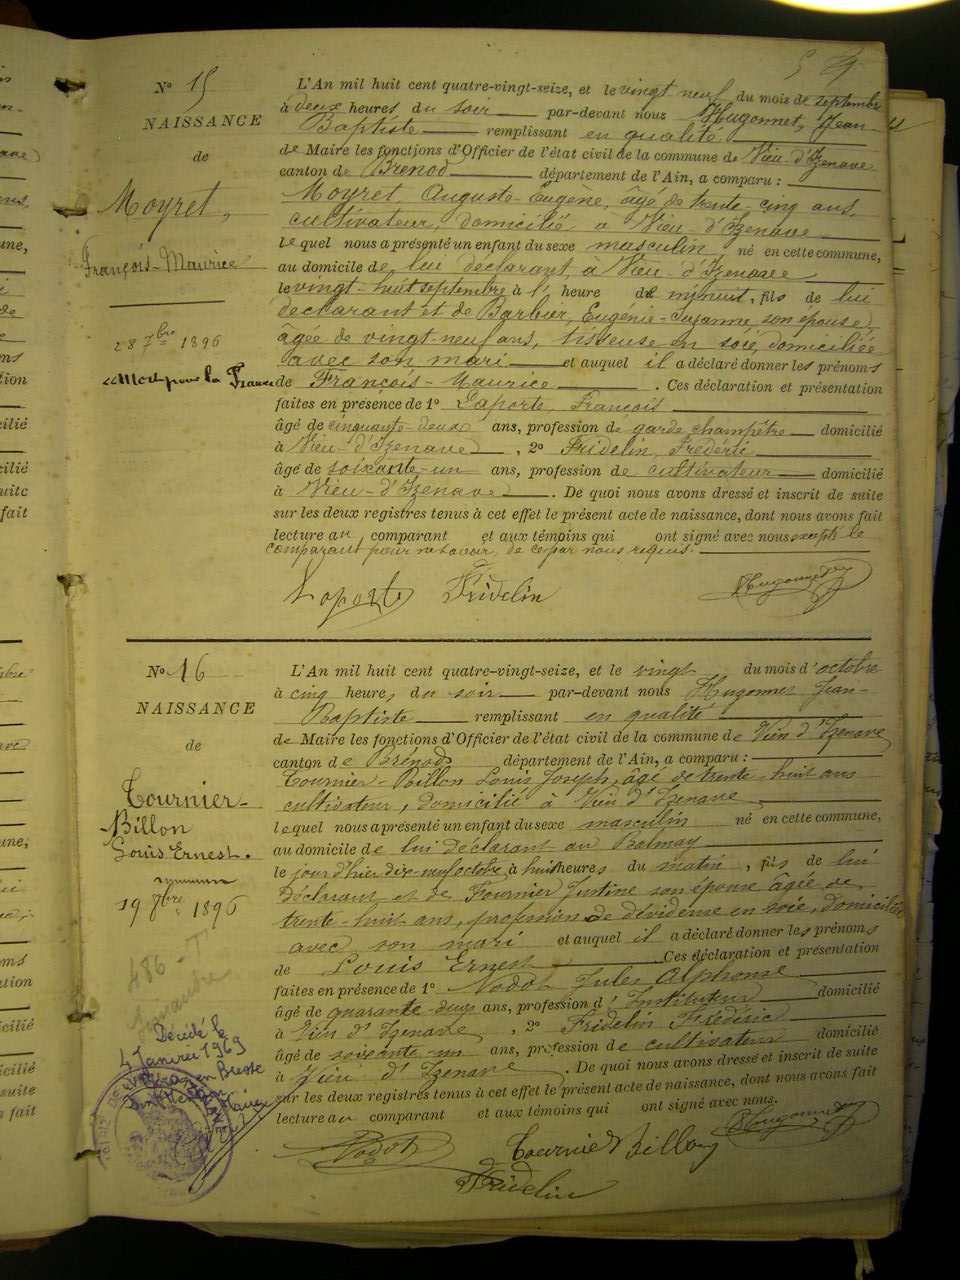 N° 15
NAISSANCE
de
Moyret,
François-Maurice
28 7bre 1896
"Mort pour la France"
L'An mil huit cent quatre-vingt-seize, et le vingt-neuf du mois de septembre
à deux heures du soir par-devant nous Hugonnet, Jean-
Baptiste remplissant en qualité
de Maire les fonctions d'Officier de l'état civil de la commune de Vieu-d'Izenave
canton de Brénod département de l'Ain, a comparu :
Moyret, Auguste-Eugène, âgé de trente-cinq ans,
cultivateur, domicilié à Vieu-d'Izenave
lequel nous a présenté un enfant du sexe masculin né en cette commune,
au domicile de lui déclarant, à Vieu-d'Izenave
le vingt-huit septembre à l' heure de minuit, fils de lui
déclarant et de Barbier, Eugénie-Suzanne, son épouse,
âgée de vingt-neuf ans, tisseuse en soie, domiciliée
avec son mari et auquel il a déclaré donner les prénoms
de François-Maurice . Ces déclaration et présentation
faites en présence de 1° Laporte, François
âgé de cinquante-deux ans, profession de garde champêtre domicilié
à Vieu-d'Izenave , 2° Fridelin, Frédéric
âgé de soixante-un ans, profession de cultivateur domicilié
à Vieu-d'Izenave . De quoi nous avons dressé et inscrit de suite
sur les deux registres tenus à cet effet le présent acte de naissance, dont nous avons fait
lecture au comparant et aux témoins qui ont signé avec nous excepté le
comparant pour ne savoir, de ce par nous requis.
Laporte Fridelin Hugonnet
N° 16
NAISSANCE
de
Tournier-
Billon
Louis Ernest.
19 8bre 1896
486
Décédé le
4 Janvier 1969
en Bresse
L'An mil huit cent quatre-vingt-seize, et le vingt du mois d'octobre
à cinq heures du soir par-devant nous Hugonnet Jean-
Baptiste remplissant en qualité
de Maire les fonctions d'Officier de l'état civil de la commune de Vieu d'Izenave
canton de Brénod département de l'Ain, a comparu :
Tournier-Billon Louis Joseph, âgé de trente-huit ans
cultivateur, domicilié à Vieu d'Izenave
lequel nous a présenté un enfant du sexe masculin né en cette commune,
au domicile de lui déclarant au Balmay
le jour d'hier dix-neuf octobre à huit heures du matin, fils de lui
déclarant et de Fournier Justine son épouse âgée de
trente-huit ans, profession de dévideuse en soie, domiciliée
avec son mari et auquel il a déclaré donner les prénoms
de Louis Ernest Ces déclaration et présentation
faites en présence de 1° Nodot Jules Alphonse
âgé de quarante-deux ans, profession d'Instituteur domicilié
à Vieu d'Izenave , 2° Fridelin Frédéric
âgé de soixante-un ans, profession de cultivateur domicilié
à Vieu d'Izenave . De quoi nous avons dressé et inscrit de suite
sur les deux registres tenus à cet effet le présent acte de naissance, dont nous avons fait
lecture au comparant et aux témoins qui ont signé avec nous.
Nodot Tournier Billon Hugonnet
Fridelin